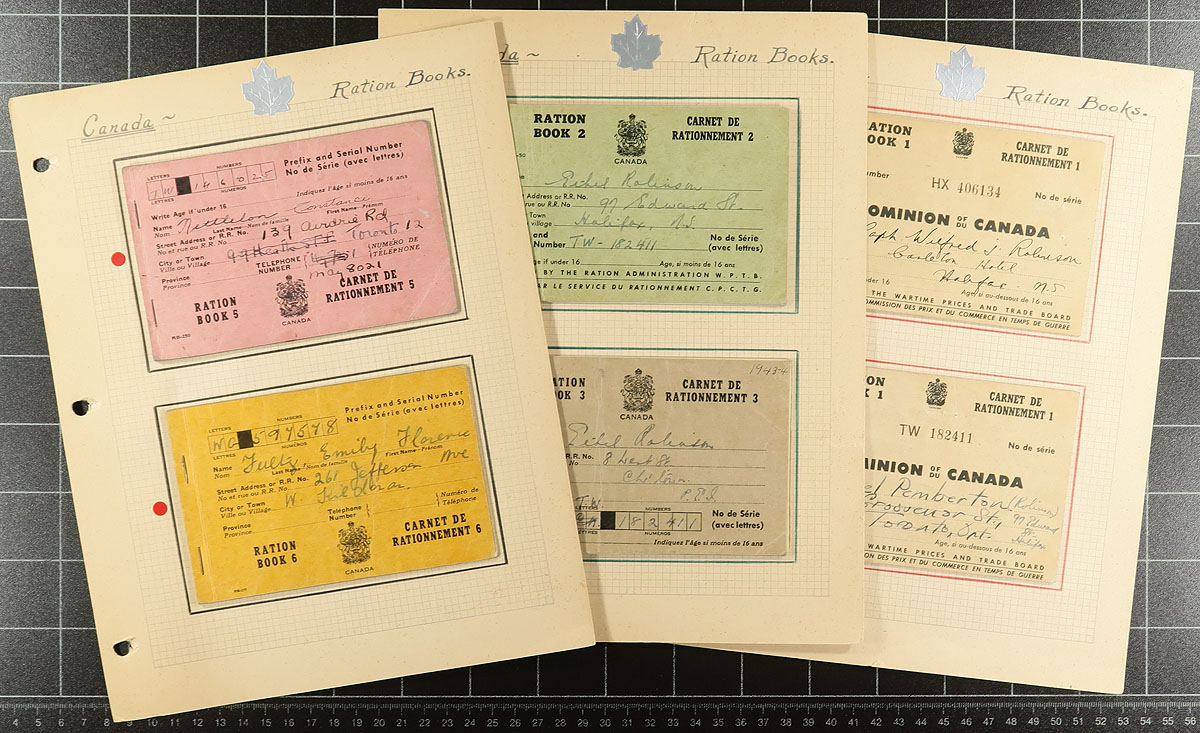 Canada ~
Ration Books.
LETTERS
NUMBERS
TW 146025
LETTRES
NUMÉROS
Prefix and Serial Number
No de Série (avec lettres)
Indiquez l'âge si moins de 16 ans
Write Age if under 16
Name Nettleton Constance
Nom Last Name—Nom de famille First Name—Prénom
Street Address or R.R. No. 139 Airdrie Rd
No et rue ou R.R. No.
City or Town Toronto 12
Ville ou Village
TELEPHONE NUMBER
(NUMÉRO DE TÉLÉPHONE
Province
Province
May 8021
RATION BOOK 5
CANADA
CARNET DE RATIONNEMENT 5
RB-250
LETTERS
NUMBERS
WG 597578
LETTRES
NUMÉROS
Prefix and Serial Number
No de Série (avec lettres)
Name Fultz Emily Florence
Nom Last Name—Nom de famille First Name—Prénom
Street Address or R.R. No. 261 Jefferson Ave
No et rue ou R.R. No.
City or Town W.
Ville ou Village
Telephone Number
(Numéro de Téléphone
Province
Province
RATION BOOK 6
CANADA
CARNET DE RATIONNEMENT 6
da ~
Ration Books.
RATION BOOK 2
CANADA
CARNET DE RATIONNEMENT 2
-50
Ethel Robinson
Address or R.R. No. 97 Edward St.
rue ou R.R. No
Town Halifax N.S.
village
and
Number TW-182411
No de Série (avec lettres)
ge if under 16 Age, si moins de 16 ans
BY THE RATION ADMINISTRATION W.P.T.B.
AR LE SERVICE DU RATIONNEMENT C.P.C.T.G.
1943-4
ATION
K 3
CANADA
CARNET DE RATIONNEMENT 3
Ethel Robinson
R.R. No. 8 West St
No
Ch'town
P.E.I.
TW
LETTERS
NUMBERS
182411
LETTRES
NUMÉROS
No de Série (avec lettres)
Indiquez l'âge si moins de 16 ans
Ration Books.
ATION
OOK 1
CARNET DE RATIONNEMENT 1
umber HX 406134 No de série
OMINION OF DU CANADA
alph Wilfred J. Robinson
Carleton Hotel
Halifax N.S
der 16 Age, si au-dessous de 16 ans
THE WARTIME PRICES AND TRADE BOARD
OMMISSION DES PRIX ET DU COMMERCE EN TEMPS DE GUERRE
ON
K 1
CARNET DE RATIONNEMENT 1
TW 182411
No de série
INION OF DU CANADA
el Pemberton (Robinson)
Grosvenor St, 97 Edward St.
Toronto, Ont. Halifax
Age, si au-dessous de 16 ans
WARTIME PRICES AND TRADE BOARD
ON DES PRIX ET DU COMMERCE EN TEMPS DE GUERRE
4 5 6 7 8 9 10 11 12 13 14 15 16 17 18 19 20 21 22 23 24 25 26 27 28 29 30 31 32 33 34 35 36 37 38 39 40 41 42 43 44 45 46 47 48 49 50 51 52 53 54 55 56